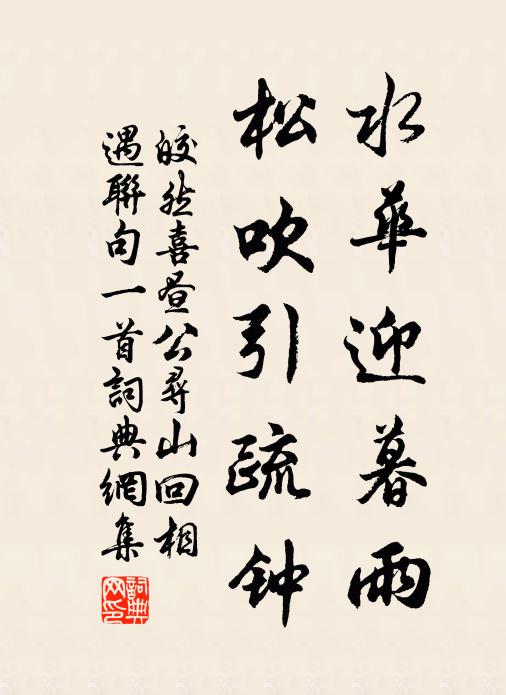 水華迎暮雨
松吹引疏钟
皎然喜昼公尋山回相
遇聯句一首詞典網集
詞典網印